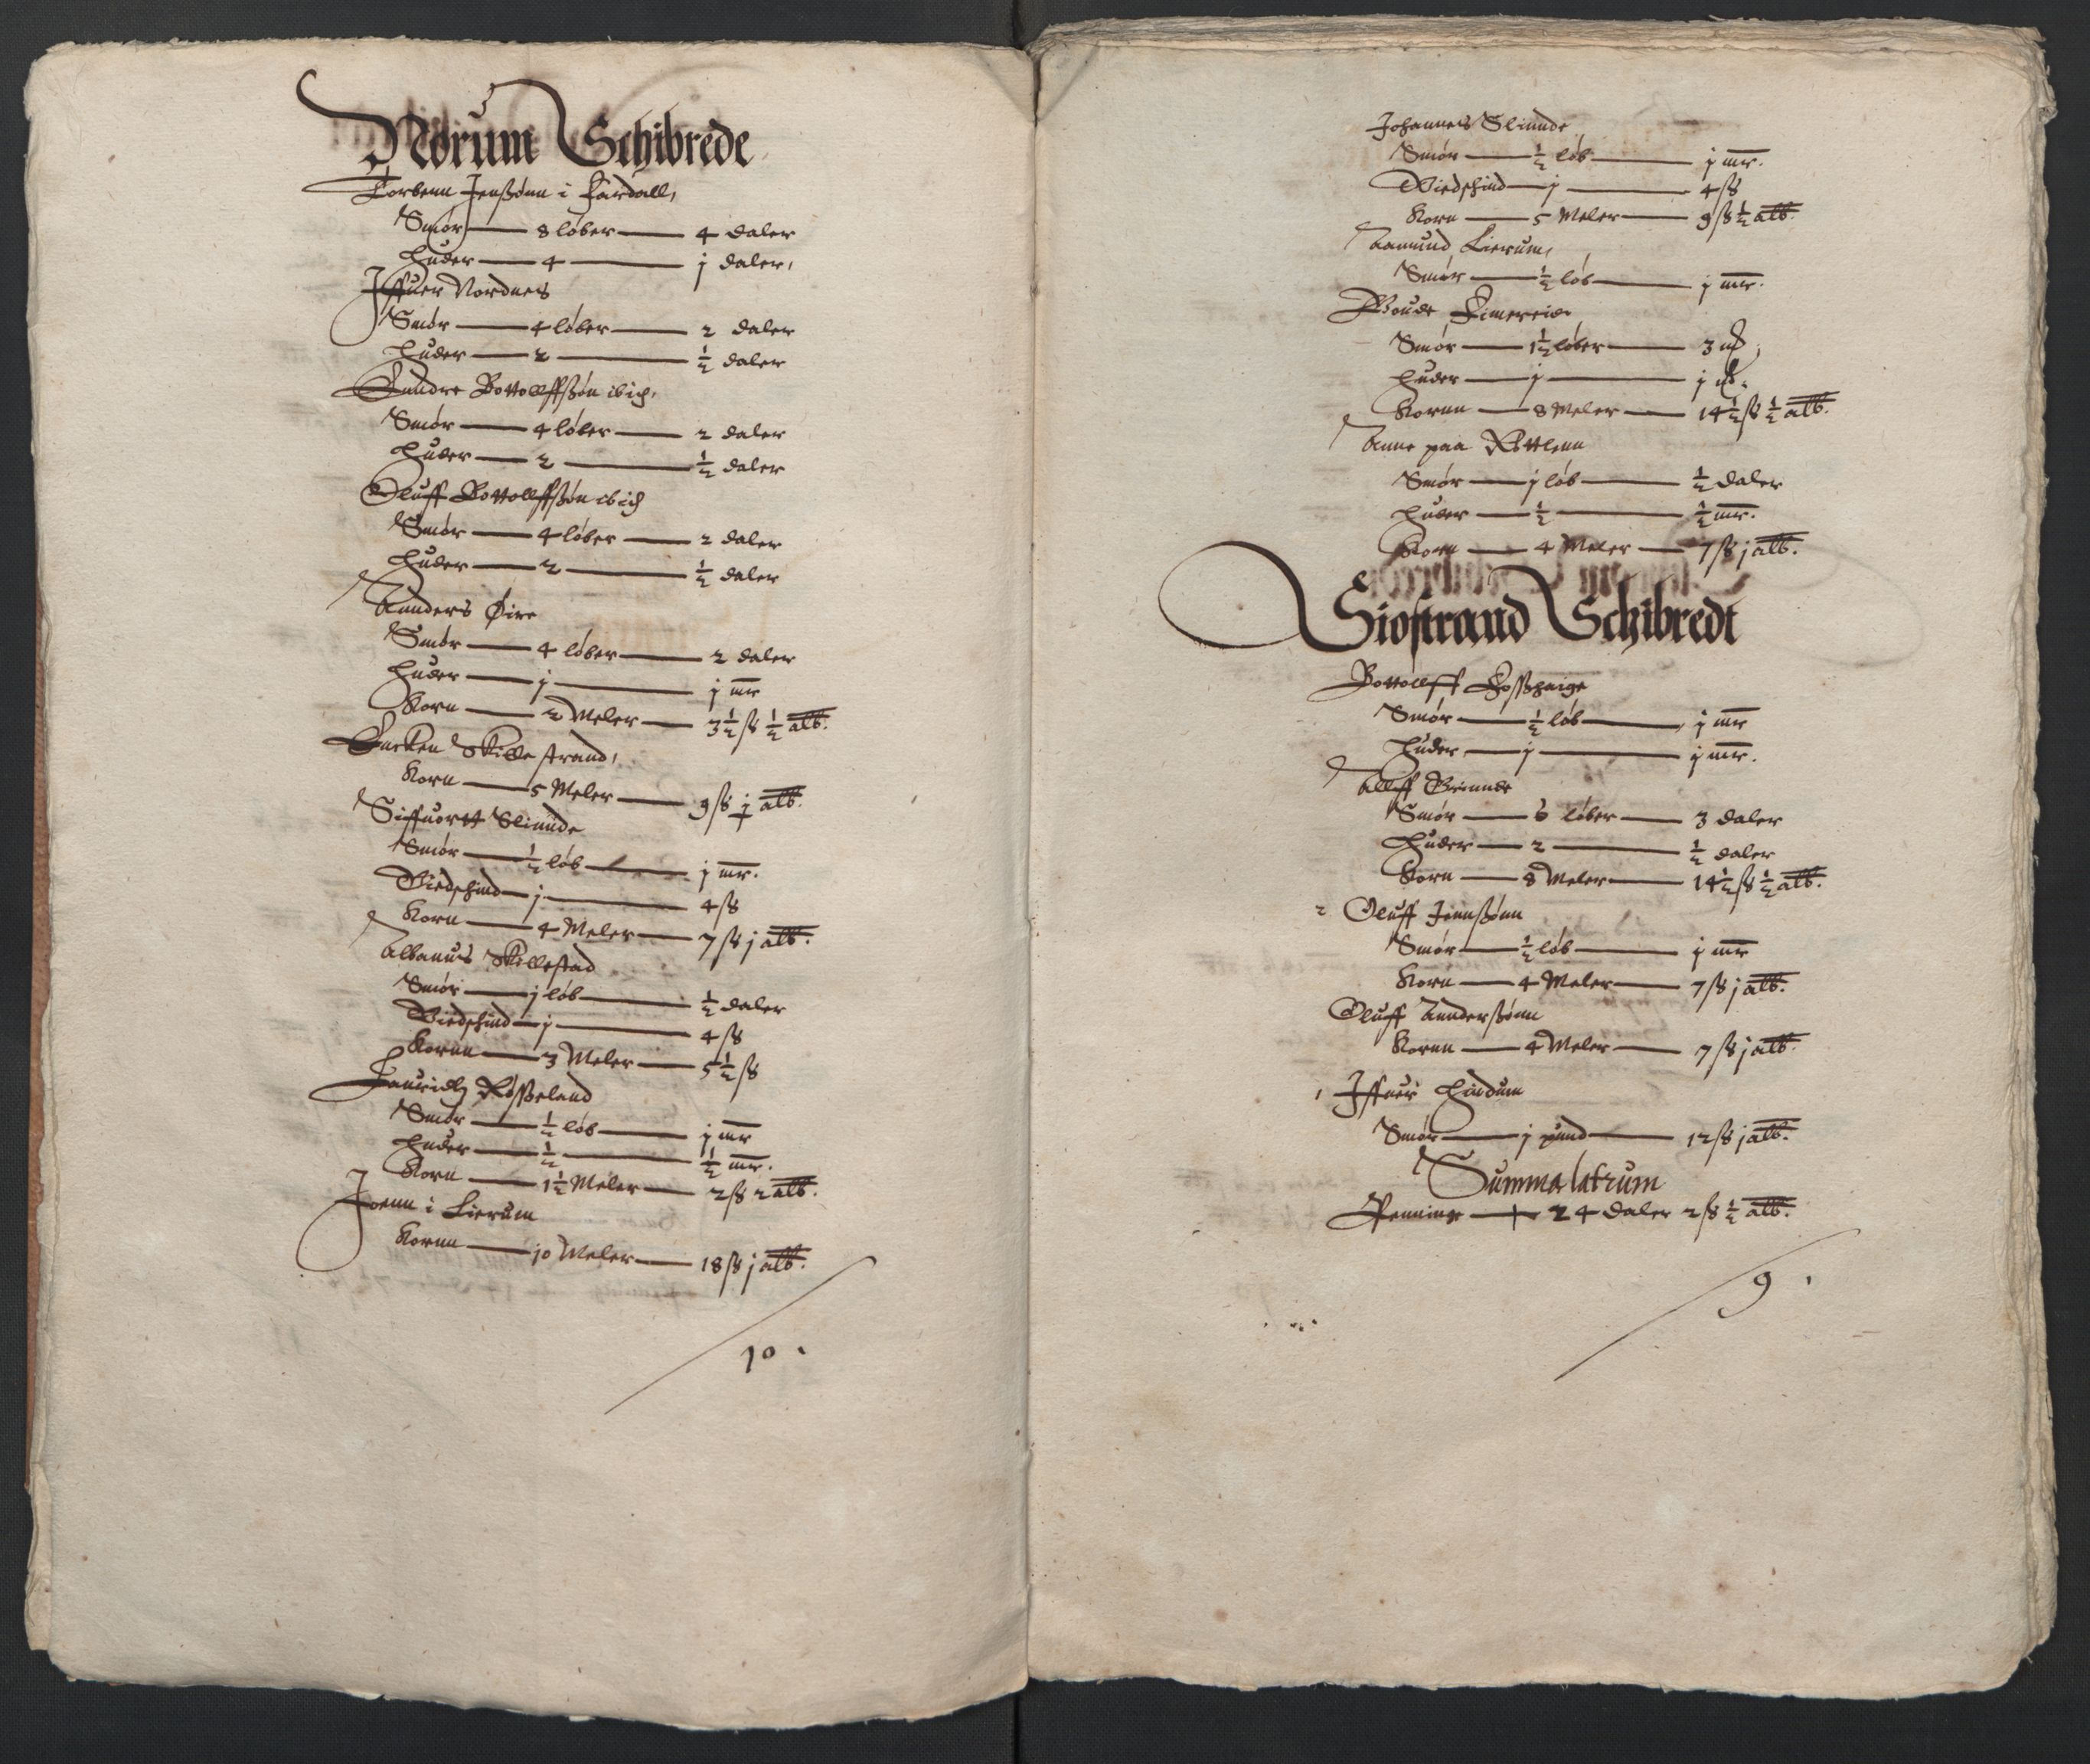 Norum Schibrede
Torbenn Jenssønn i Fardall,
Smør — 8 løber — 4 daler
Huder — 4 — j daler,
Iffuer Nordnes
Smør — 4 løber — 2 daler
Huder — 2 — ½ daler
Sundre Bottollffssøn ibid.
Smør — 4 løber — 2 daler
Huder — 2 — ½ daler
Oluff Bottollffssøn ibid
Smør — 4 løber — 2 daler
Huder — 2 — ½ daler
Annders Øire
Smør — 4 løber — 2 daler
Huder — j — j mr
Korn — 2 Meler — 3½ ß ½ alb.
Skillestrand,
Korn — 5 Meler — 9 ß j alb.
Siffuortt Slinnde
Smør — ½ løb — j mr.
Biedshind — j — 4 ß
Korn — 4 Meler — 7 ß j alb.
Albanus Skillestad
Smør — j løb — ½ daler
Biedshind — j — 4 ß
Kornn — 3 Meler — 5½ ß
Lauridtz Røsseland
Smør — ½ løb — j mr
Huder — ½ — ½ mr.
Korn — 1½ Meler — 2 ß 2 alb.
Joenn i Lierum
Kornn — jo Meler — 18 ß j alb.
10.
Johannes Slinnde
Smør — ½ løb — j mr.
Biedshind — j — 4 ß
Korn — 5 Meler — 9 ß ½ alb.
Aamund Lierum,
Smør — ½ løb — j mr.
Goude Eimereide
Smør — 1½ løber — 3
Huder — j — j
Kornn — 8 Meler — 14½ ß ½ alb.
Anne paa Røttlenn
Smør — j løb — ½ daler
Huder — ½ — ½ mr.
Korn — 4 Meler — 7 ß j alb.
Siostrand Schibredt
Bottolff Fosshaige
Smør — ½ løb — j mr
Huder — j — j mr.
Alleff Grinnde
Smør — 6 løber — 3 daler
Huder — 2 — ½ daler
Korn — 8 Meler — 14½ ß ½ alb.
2 Oluff Jennssønn
Smør — ½ løb — j mr
Korn — 4 Meler — 7 ß j alb.
Oluff Annderssønn
Kornn — 4 Meler — 7 ß j alb.
1 Iffuer Hindum
Smør — j pund — 12 ß j alb.
Summa latrum
Penninge — 24 daler 2 ß ½ alb.
9.